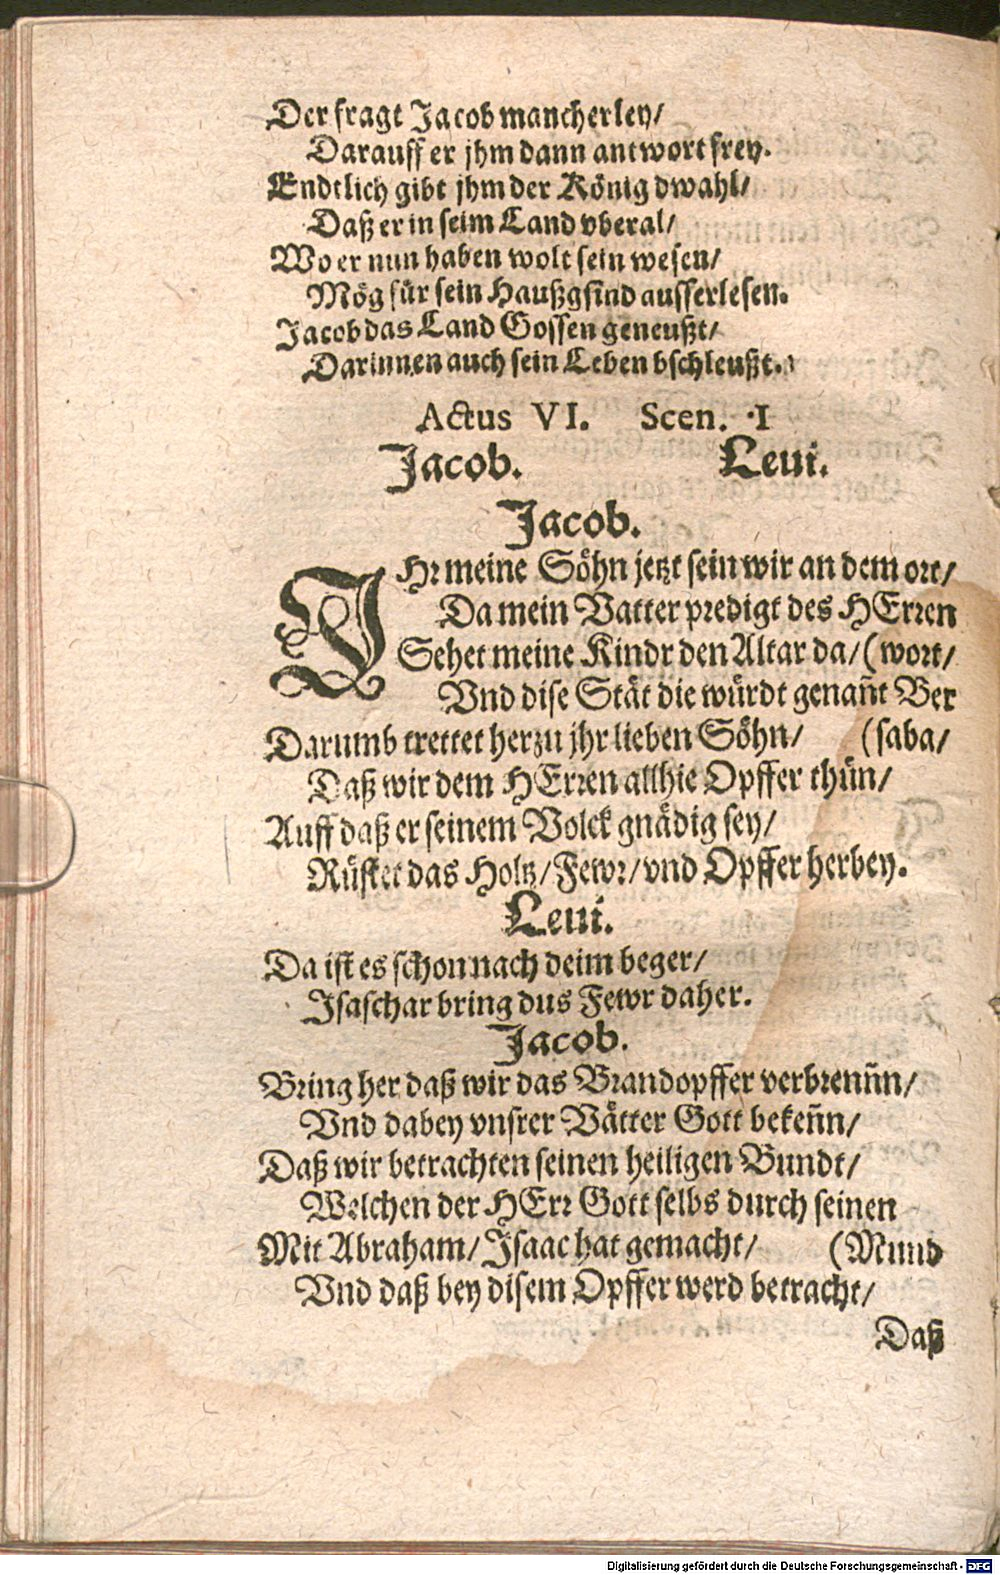 Der fragt Jacob mancherley/
Darauff er jhm dann antwort frey.
Endtlich gibt jhm der König dwahl/
Daß er in seim Land vberal/
Wo er nun haben wolt sein wesen/
Mög für sein Haußgsind ausserlesen.
Jacob das Land Gossen geneußt/
Darinnen auch sein Leben bschleußt.
Actus VI. Scen. I
Jacob. Leui.
Jacob.
IHr meine Söhn jetzt sein wir an dem ort/
Da mein Vatter predigt des HErren
Sehet meine Kindr den Altar da/ (wort/
Vnd dise Stät die würdt genañt Ber
Darumb trettet herzu jhr lieben Söhn/ (saba/
Daß wir dem HErren allhie Opffer thün/
Auff daß er seinem Volck gnädig sey/
Rüstet das Holtz/ Fewr/ vnd Opffer herbey.
Leui.
Da ist es schon nach deim beger/
Isaschar bring dus Fewr daher.
Jacob.
Bring her daß wir das Brandopffer verbrenñn/
Vnd dabey vnsrer Vätter Gott bekeñn/
Daß wir betrachten seinen heiligen Bundt/
Welchen der HErr Gott selbs durch seinen
Mit Abraham/ Isaac hat gemacht/ (Mund
Vnd daß bey disem Opffer werd betracht/
Daß
Digitalisierung gefördert durch die Deutsche Forschungsgemeinschaft - DFG